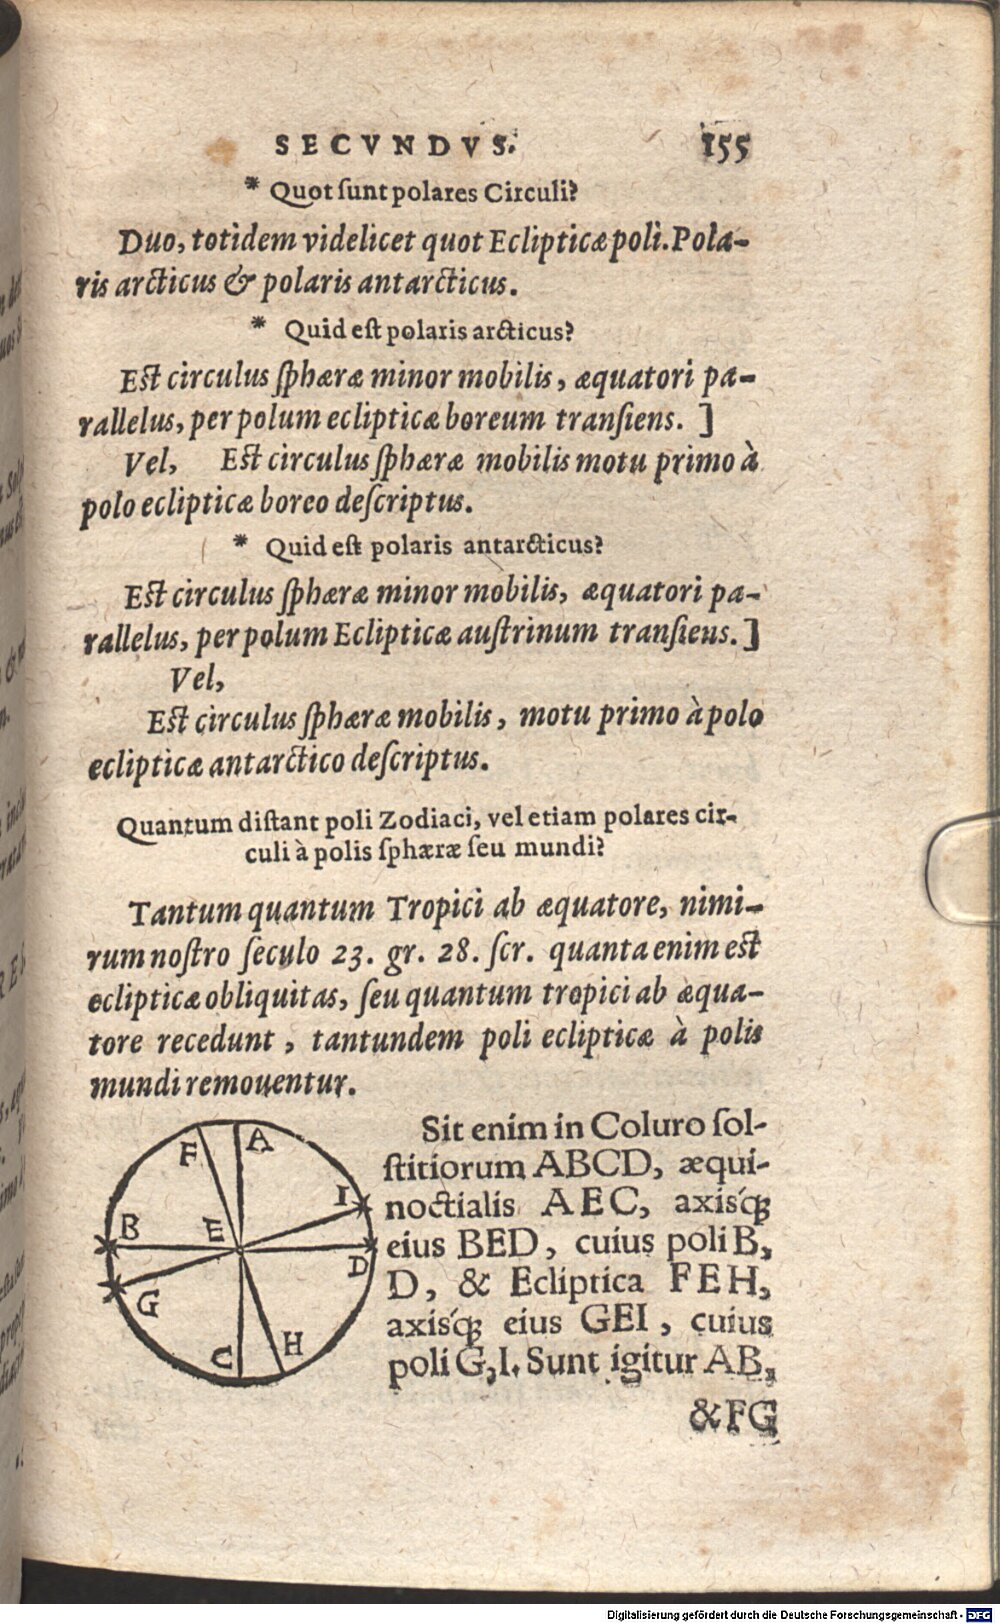 SECVNDVS. 155
* Quot ſunt polares Circuli?
Duo, totidem videlicet quot Eclipticæ poli. Pola-
ris arcticus & polaris antarcticus.
* Quid eſt polaris arcticus?
Eſt circulus ſphæræ minor mobilis, æquatori pa-
rallelus, per polum eclipticæ boreum tranſiens. ]
Vel, Eſt circulus ſphæræ mobilis motu primo à
polo eclipticæ boreo deſcriptus.
* Quid eſt polaris antarcticus?
Eſt circulus ſphæræ minor mobilis, æquatori pa-
rallelus, per polum Eclipticæ auſtrinum tranſiens. ]
Vel,
Eſt circulus ſphæræ mobilis, motu primo à polo
eclipticæ antarctico deſcriptus.
Quantum diſtant poli Zodiaci, vel etiam polares cir-
culi à polis ſphæræ ſeu mundi?
Tantum quantum Tropici ab æquatore, nimi-
rum noſtro ſeculo 23. gr. 28. ſcr. quanta enim eſt
eclipticæ obliquitas, ſeu quantum tropici ab æqua-
tore recedunt, tantundem poli eclipticæ à polis
mundi remouentur.
F A
I
B E
D
G
C H
Sit enim in Coluro ſol-
ſtitiorum ABCD, æqui-
noctialis AEC, axisq́;
eius BED, cuius poli B,
D, & Ecliptica FEH,
axisq́; eius GEI, cuius
poli G, I. Sunt igitur AB,
& FG
Digitalisierung gefördert durch die Deutsche Forschungsgemeinschaft - DFG